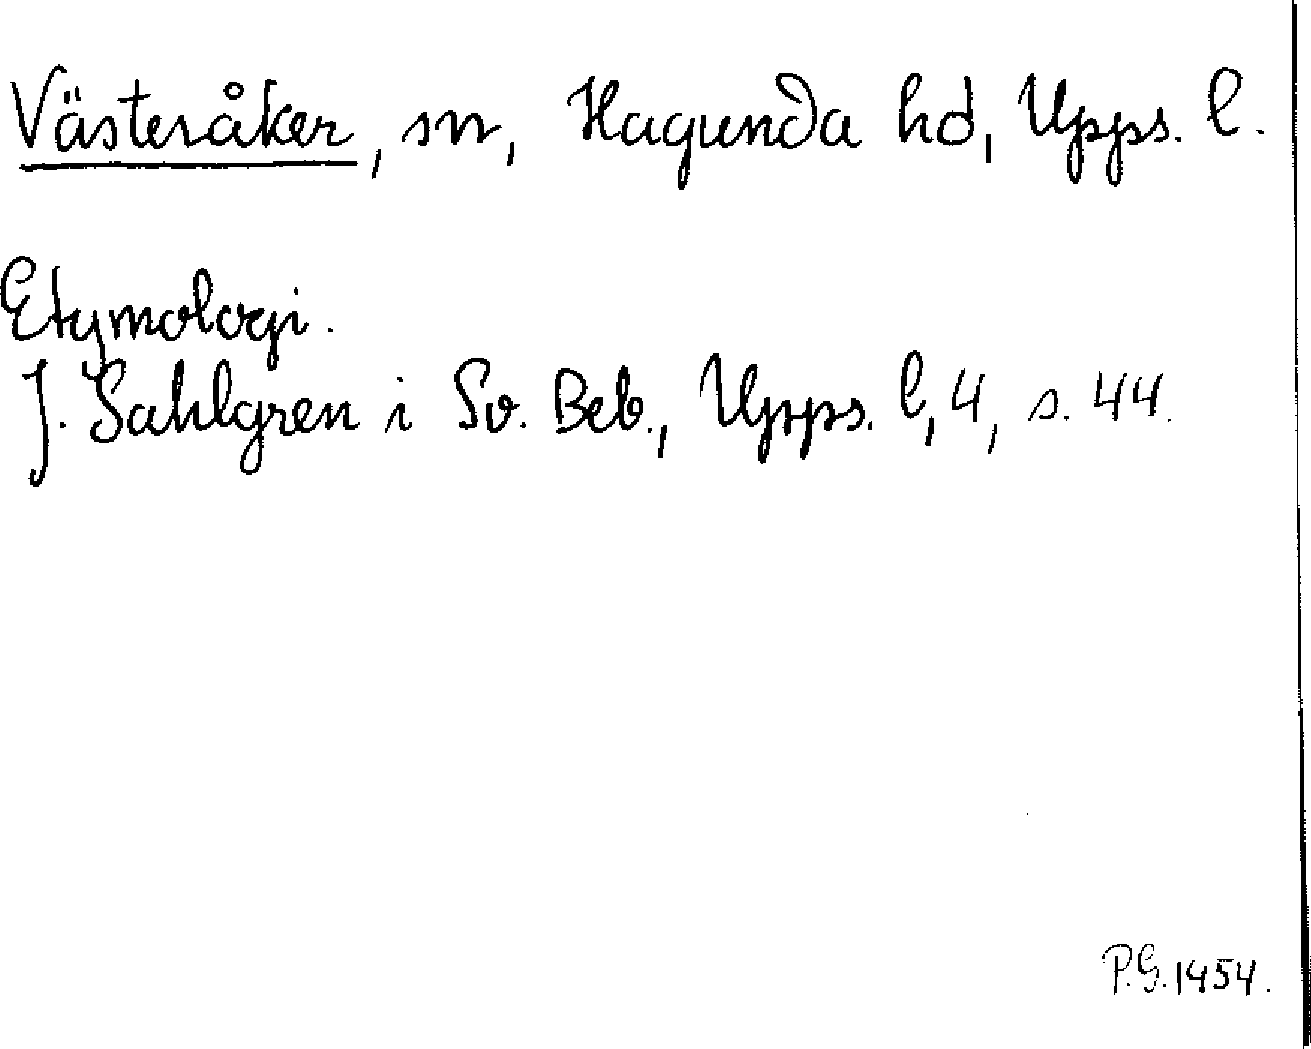 Västeråker, sn, Hagunda hd, Upps. l.
Etymologi.
J. Sahlgren i Sv. Beb., Upps. l, 4, s. 44.
P.G. 1454.